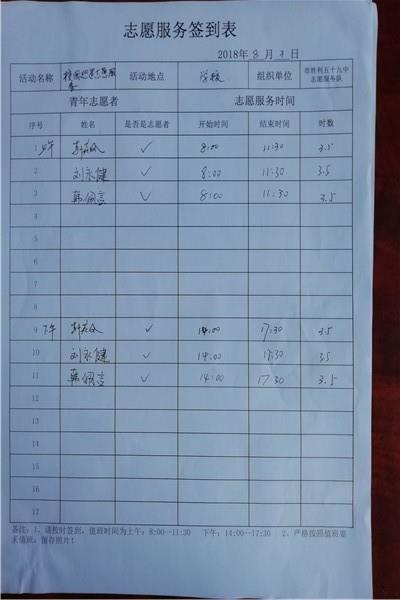 志愿服务签到表
2018年8月3日
活动名称 活动地点 学校 组织单位 市胜利五十九中志愿服务队
青年志愿者 志愿服务时间
序号 姓名 是否是志愿者 开始时间 结束时间 时数
1 ✓ 8:00 11:30 3.5
2 刘永健 ✓ 8:00 11:30 3.5
3 韩佩言 ✓ 8:00 11:30 3.5
4
5
6
7
8
9 下午 ✓ 14:00 17:30 3.5
10 刘永健 ✓ 14:00 17:30 3.5
11 韩佩言 ✓ 14:00 17:30 3.5
12
13
14
15
16
17
备注:1、请按时签到,值班时间为上午:8:00--11:30 下午:14:00--17:30 2、严格按照值班要
求值班,留存照片!